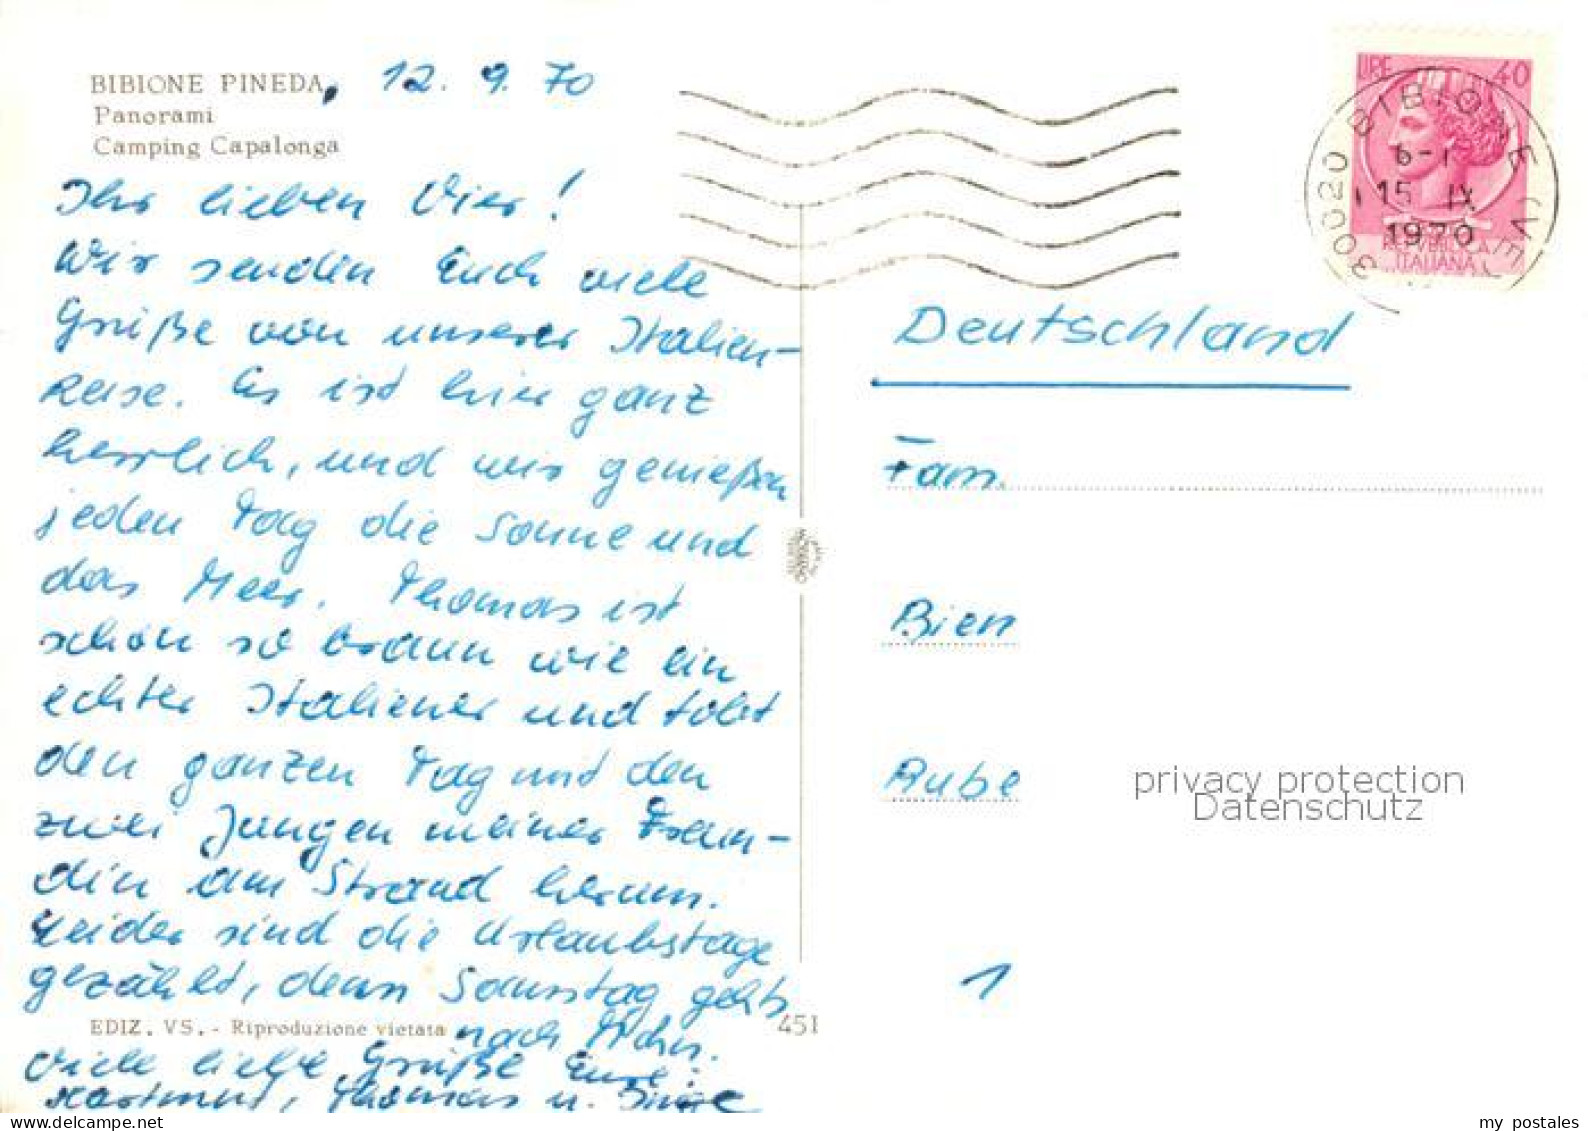 BIBIONE PINEDA, 12. 9. 70
Panorami
Camping Capalonga
Ihr lieben Vier!
Wir senden Euch viele
Grüße von unserer Italien-
reise. Es ist hier ganz
herrlich, und wir genießen
jeden Tag die Sonne und
das Meer. Thomas ist
schon so braun wie ein
echter Italiener und tobt
den ganzen Tag mit den
zwei Jungen meiner Freun-
din am Strand herum.
Leider sind die Urlaubstage
gezählt, denn Samstag gehts
nach
Viele liebe Grüße Eure
Hartmut, Thomas u.
EDIZ. VS. - Riproduzione vietata
451
LIRE 40
REPUBBLICA
ITALIANA
30020 BIBIONE (VE)
6-
15 IX
1970
Deutschland
Fam.
Bien
Rube
1
privacy protection
Datenschutz
my postales